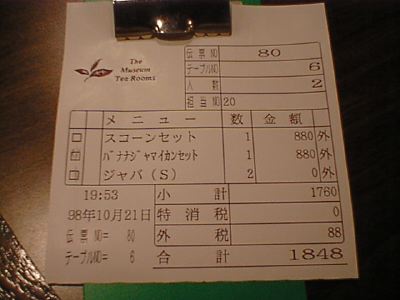 The
Museum
Tee Rooms
伝票NO 80
テーブルNO 6
人数 2
担当NO 20
メニュー 数 金額
スコーンセット 1 880 外
バナナジャマイカンセット 1 880 外
ジャバ(S) 2 0 外
19:53 小計 1760
98年10月21日 特消税 0
伝票NO= 80 外税 88
テーブルNO= 6 合計 1848